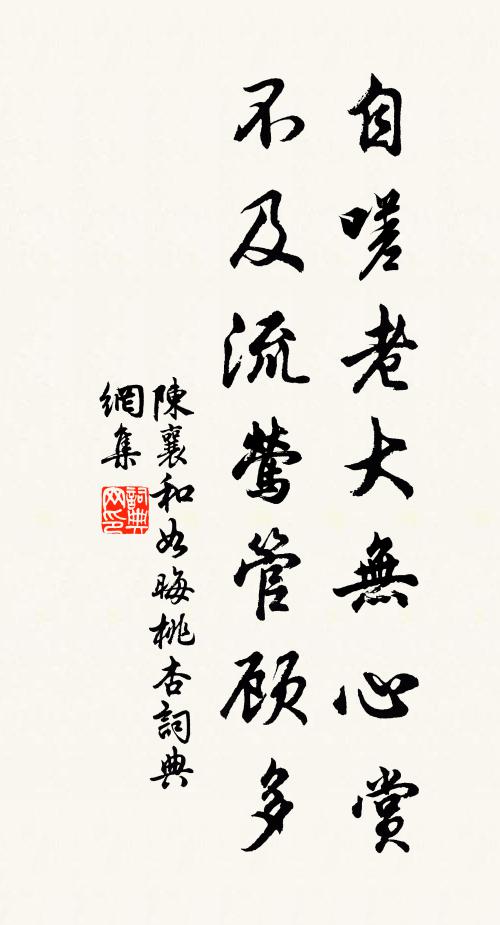 自嗟老大無心賞
不及流鶯管顾多
陳襄和如晦桃杏詞典
網集
詞典網印